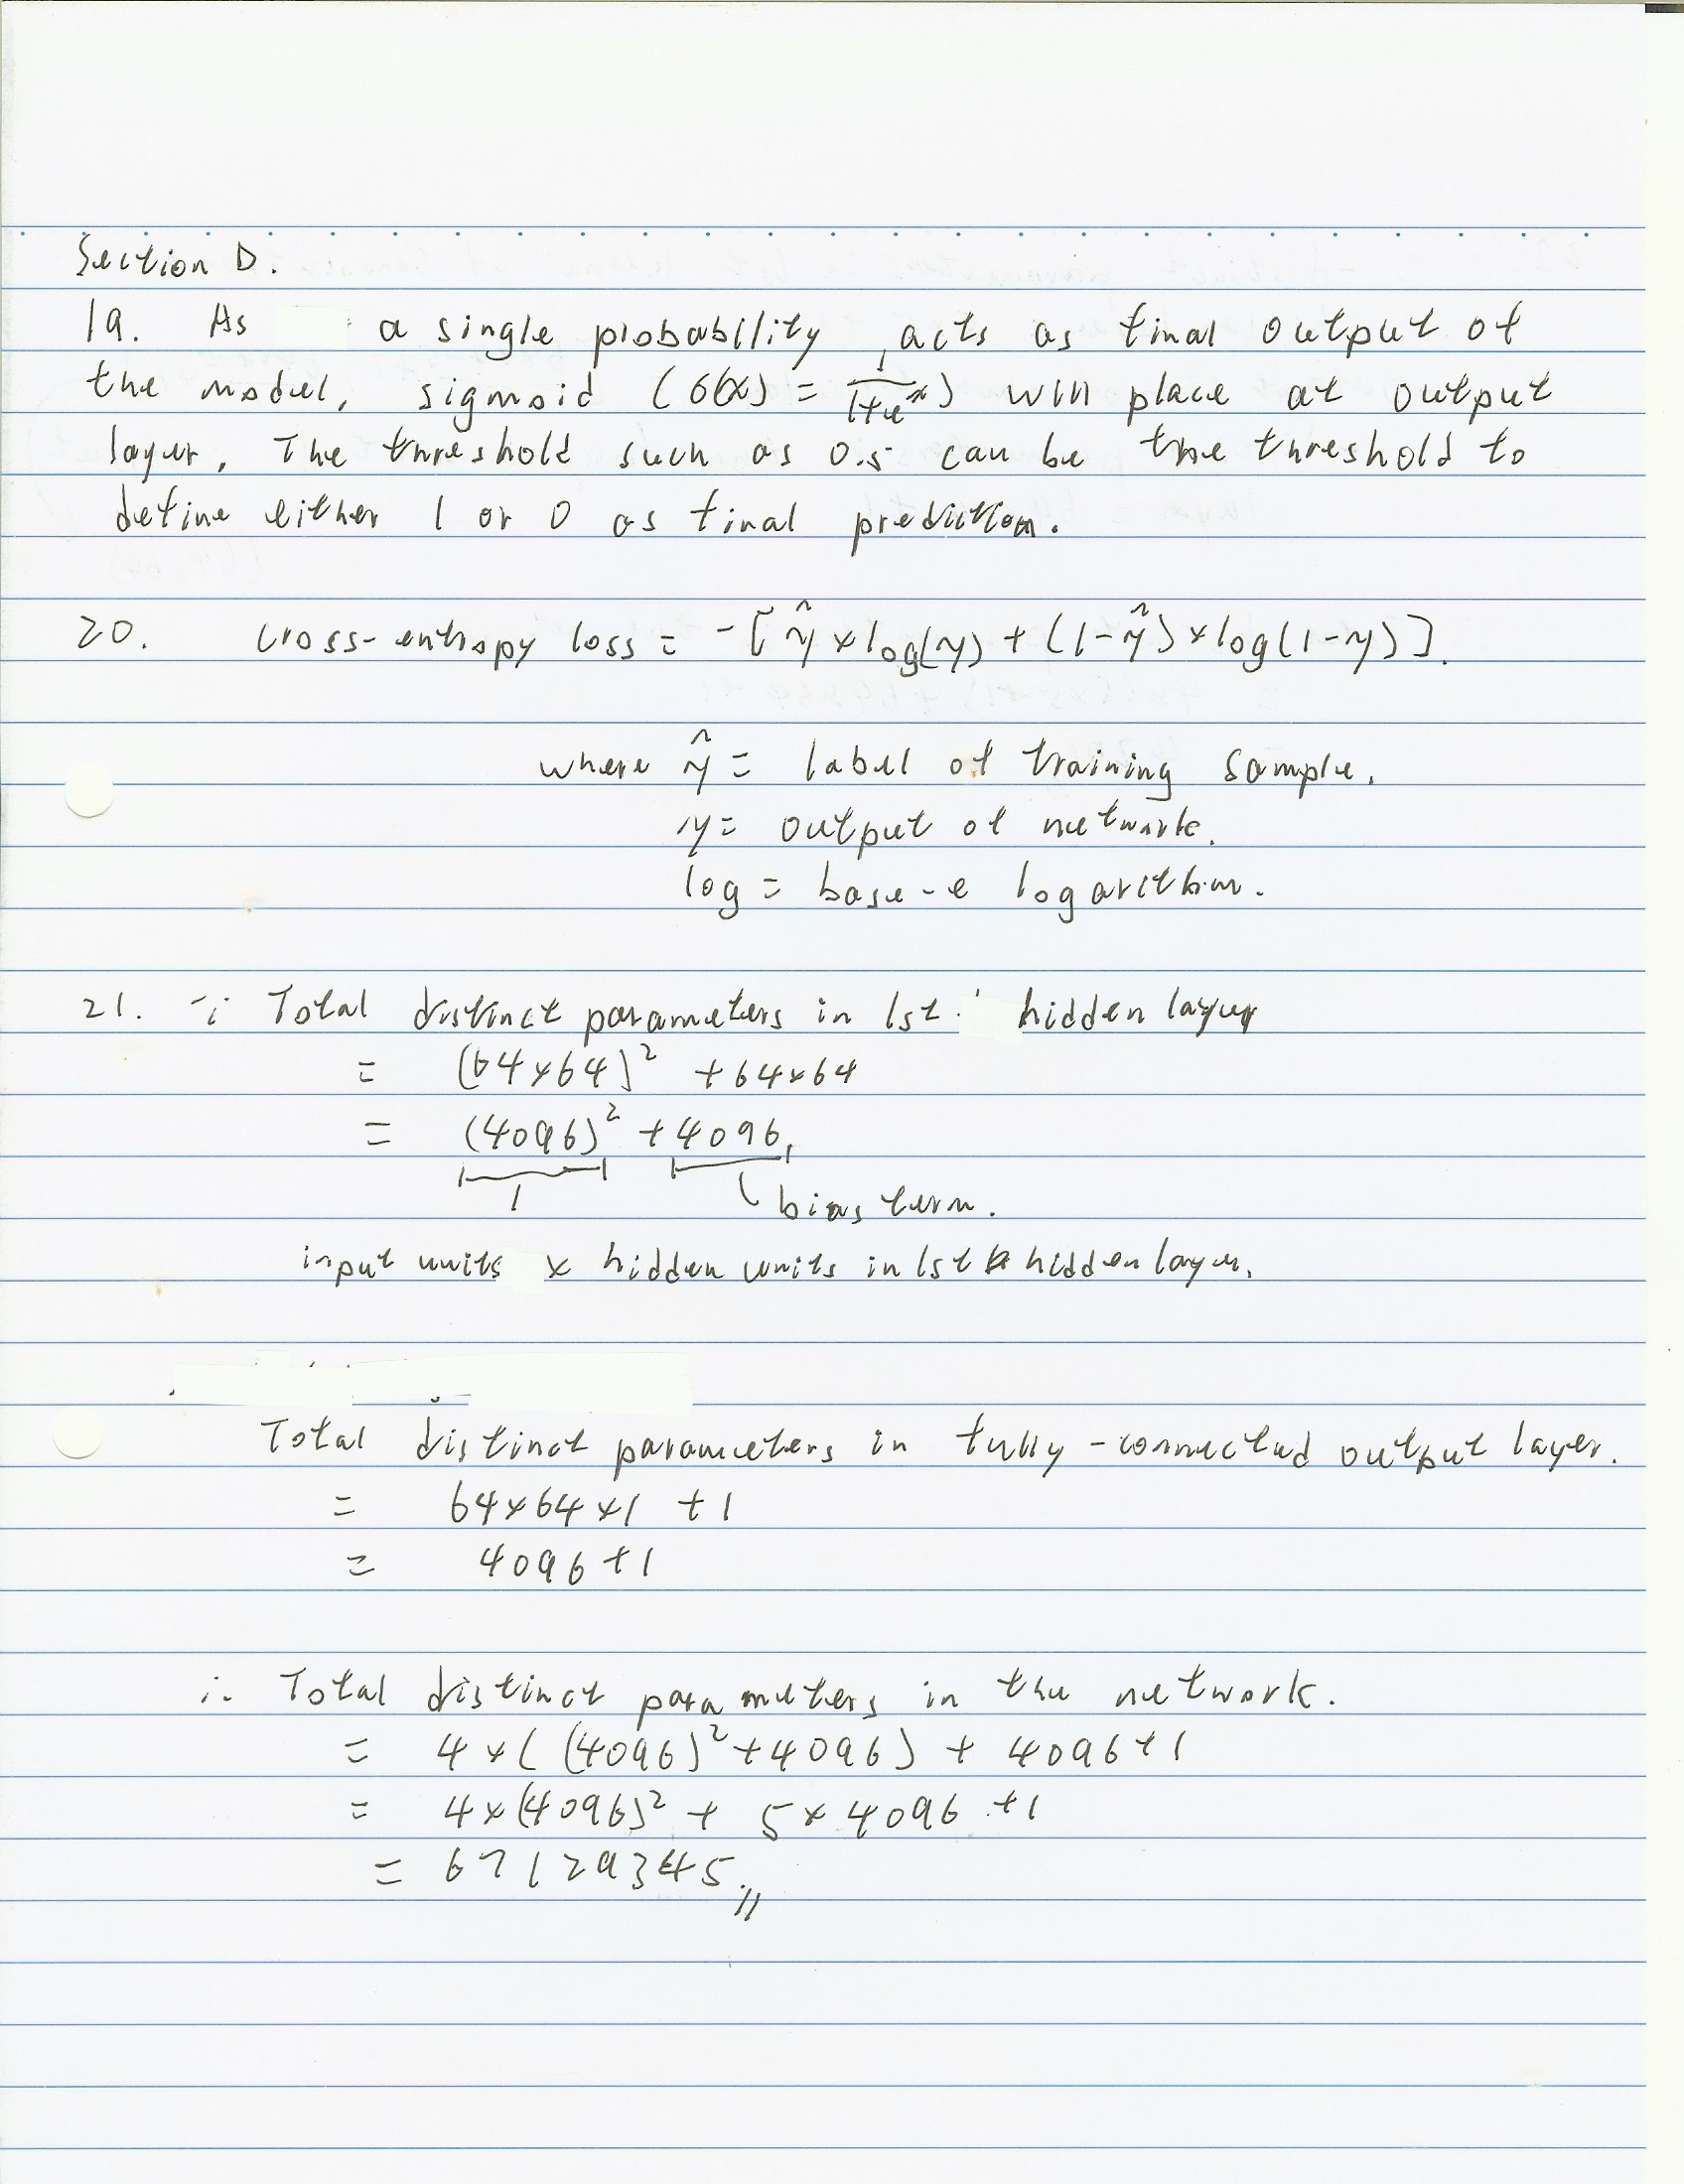 Section D.
19. As a single probability, acts as final output of
the model, sigmoid (σ(x) = 1/(1+e^-x)) will place at output
layer. The threshold such as 0.5 can be the threshold to
define either 1 or 0 as final prediction.
20. cross-entropy loss = -[ŷ×log(y) + (1-ŷ)×log(1-y)].
where ŷ = label of training sample.
y = output of network.
log = base-e logarithm.
21. ∵ Total distinct parameters in 1st hidden layer
= (64×64)² + 64×64
= (4096)² + 4096
bias term.
input units × hidden units in 1st hidden layer.
Total distinct parameters in fully-connected output layer.
= 64×64×1 + 1
= 4096 + 1
∴ Total distinct parameters in the network.
= 4×((4096)² + 4096) + 4096 + 1
= 4×(4096)² + 5×4096 + 1
= 67129345.//